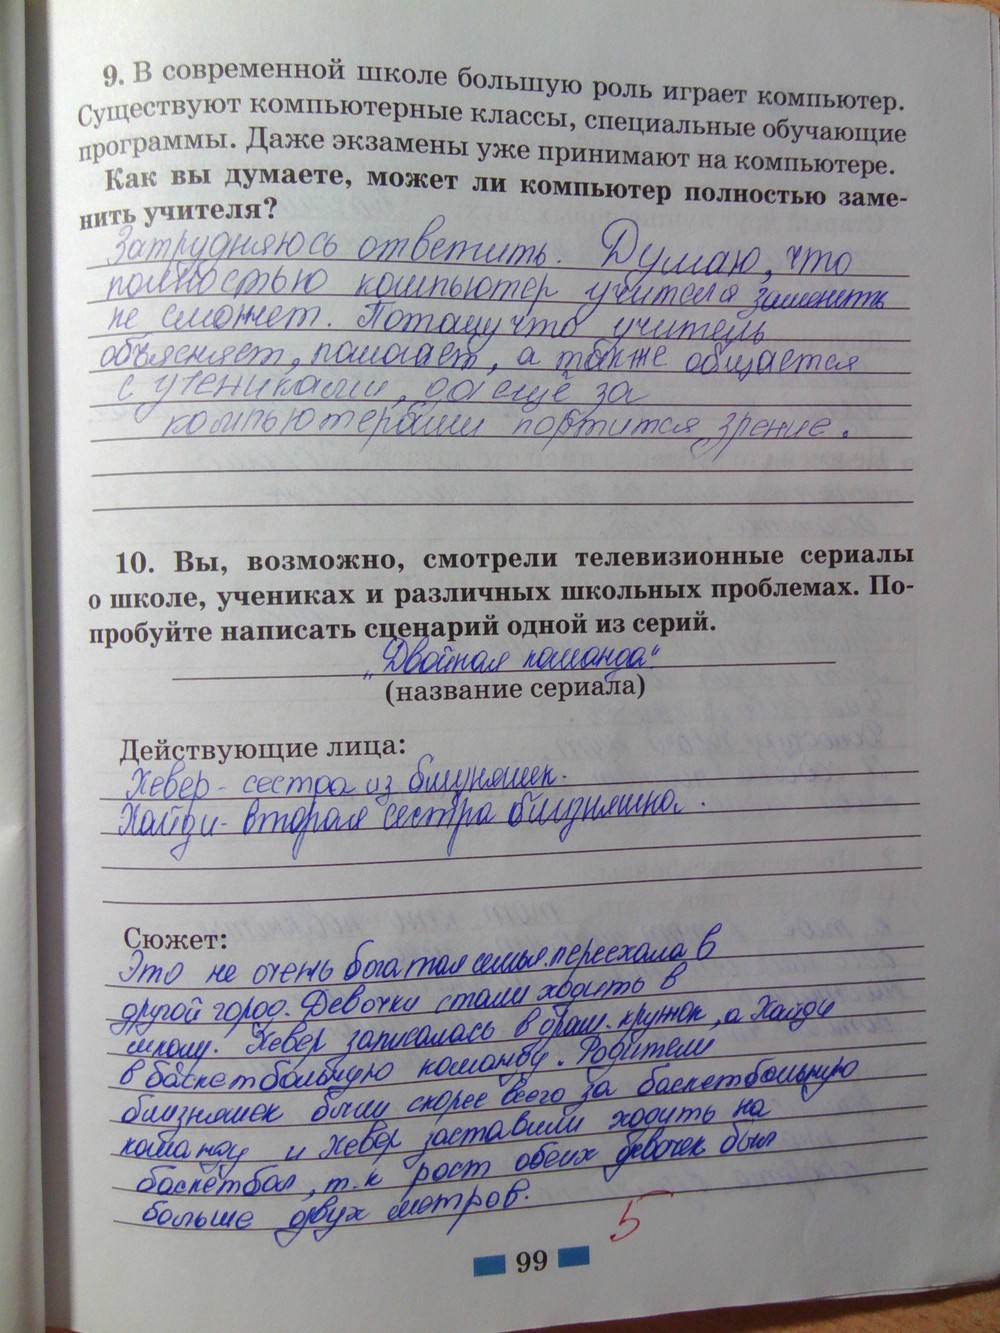 9. В современной школе большую роль играет компьютер.
Существуют компьютерные классы, специальные обучающие
программы. Даже экзамены уже принимают на компьютере.
Как вы думаете, может ли компьютер полностью заме-
нить учителя?
Затрудняюсь ответить. Думаю, что
полностью компьютер учителя заменить
не сможет. Потому что учитель
объясняет, помогает, а также общается
с учениками, да ещё за
компьютерами портится зрение.
10. Вы, возможно, смотрели телевизионные сериалы
о школе, учениках и различных школьных проблемах. По-
пробуйте написать сценарий одной из серий.
"Двойная команда"
(название сериала)
Действующие лица:
Хевер - сестра из близняшек.
Хайди - вторая сестра близняшка.
Сюжет:
Это не очень богатая семья переехала в
другой город. Девочки стали ходить в
школу. Хевер записалась в драм. кружок, а Хайди
в баскетбольную команду. Родители
близняшек были скорее всего за баскетбольную
команду и Хевер заставили ходить на
баскетбол, т.к рост обеих девочек был
больше двух метров.
5
99